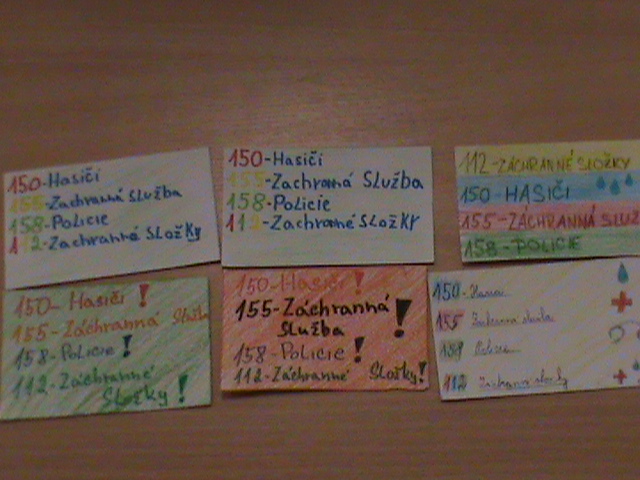 150-Hasiči
155-Zachraná Služba
158-Policie
112-Zachranné Složky
150-Hasiči
155-Zachraná Služba
158-Policie
112-Zachrané Složky
112-ZÁCHRANNÉ SLOŽKY
150-HASIČI
155-ZÁCHRANNÁ SLUŽ
158-POLICIE
150- Hasiči!
155-Záchranná Služba
158-Policie!
112-Záchranné
Složky!
150-Hasiči!
155-Záchranná
Služba!
158-Policie!
112-Záchranné Složky!
150-
155
158 Policie
112